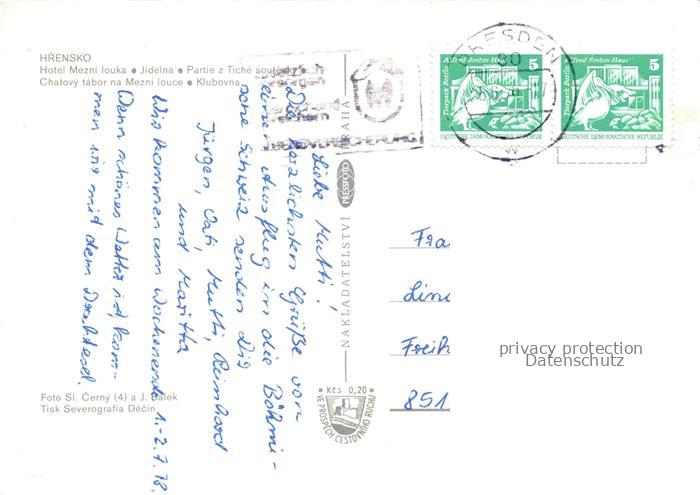 HŘENSKO
Hotel Mezní louka • Jídelna • Partie z Tiché soutěsky
Chatový tábor na Mezní louce • Klubovna
Liebe Mutti!
Die herzlichsten Grüße von
einem Ausflug in die Böhmi-
sche Schweiz senden Dir
Jürgen, Cati, Mutti, Reinhard
und Maritta
Wir kommen am Wochenende 1.-2.7.78.
Wenn schönes Wetter ist, kom-
men wir mit dem Drahtesel.
Foto Sl. Černý (4) a J. Bálek
Tisk Severografia Děčín
NAKLADATELSTVÍ
PRESSFOTO
PRAHA
Kčs 0,20
VE PROSPĚCH CESTOVNÍHO RUCHU
DRESDEN
80
Tierpark Berlin
Alfred Brehm Haus
5
DEUTSCHE DEMOKRATISCHE REPUBLIK
Tierpark Berlin
Alfred Brehm Haus
5
DEUTSCHE DEMOKRATISCHE REPUBLIK
Fra
Freih
851
privacy protection
Datenschutz